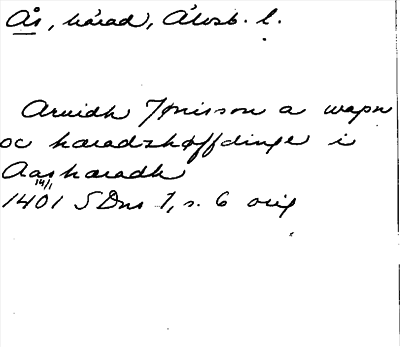 Ås, härad, Älvsb. l.
Aruidh Jønisson a wapn
oc hæradzhøffdinge i
Aasharadh
14/1
1401 SDns 1, s. 6 orig